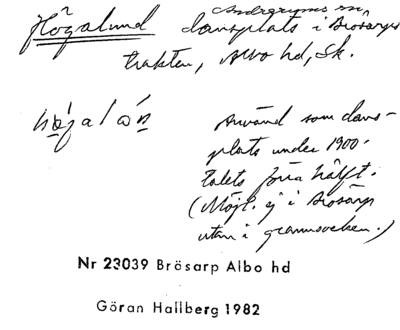 Högalund dansplats i Brösarps
trakten, Albo hd, Sk.
Använd som dans-
plats under 1900-
talets förra hälft.
(Möjl. ej i Brösarp
utan i grannsocken.)
Nr 23039 Brösarp Albo hd
Göran Hallberg 1982